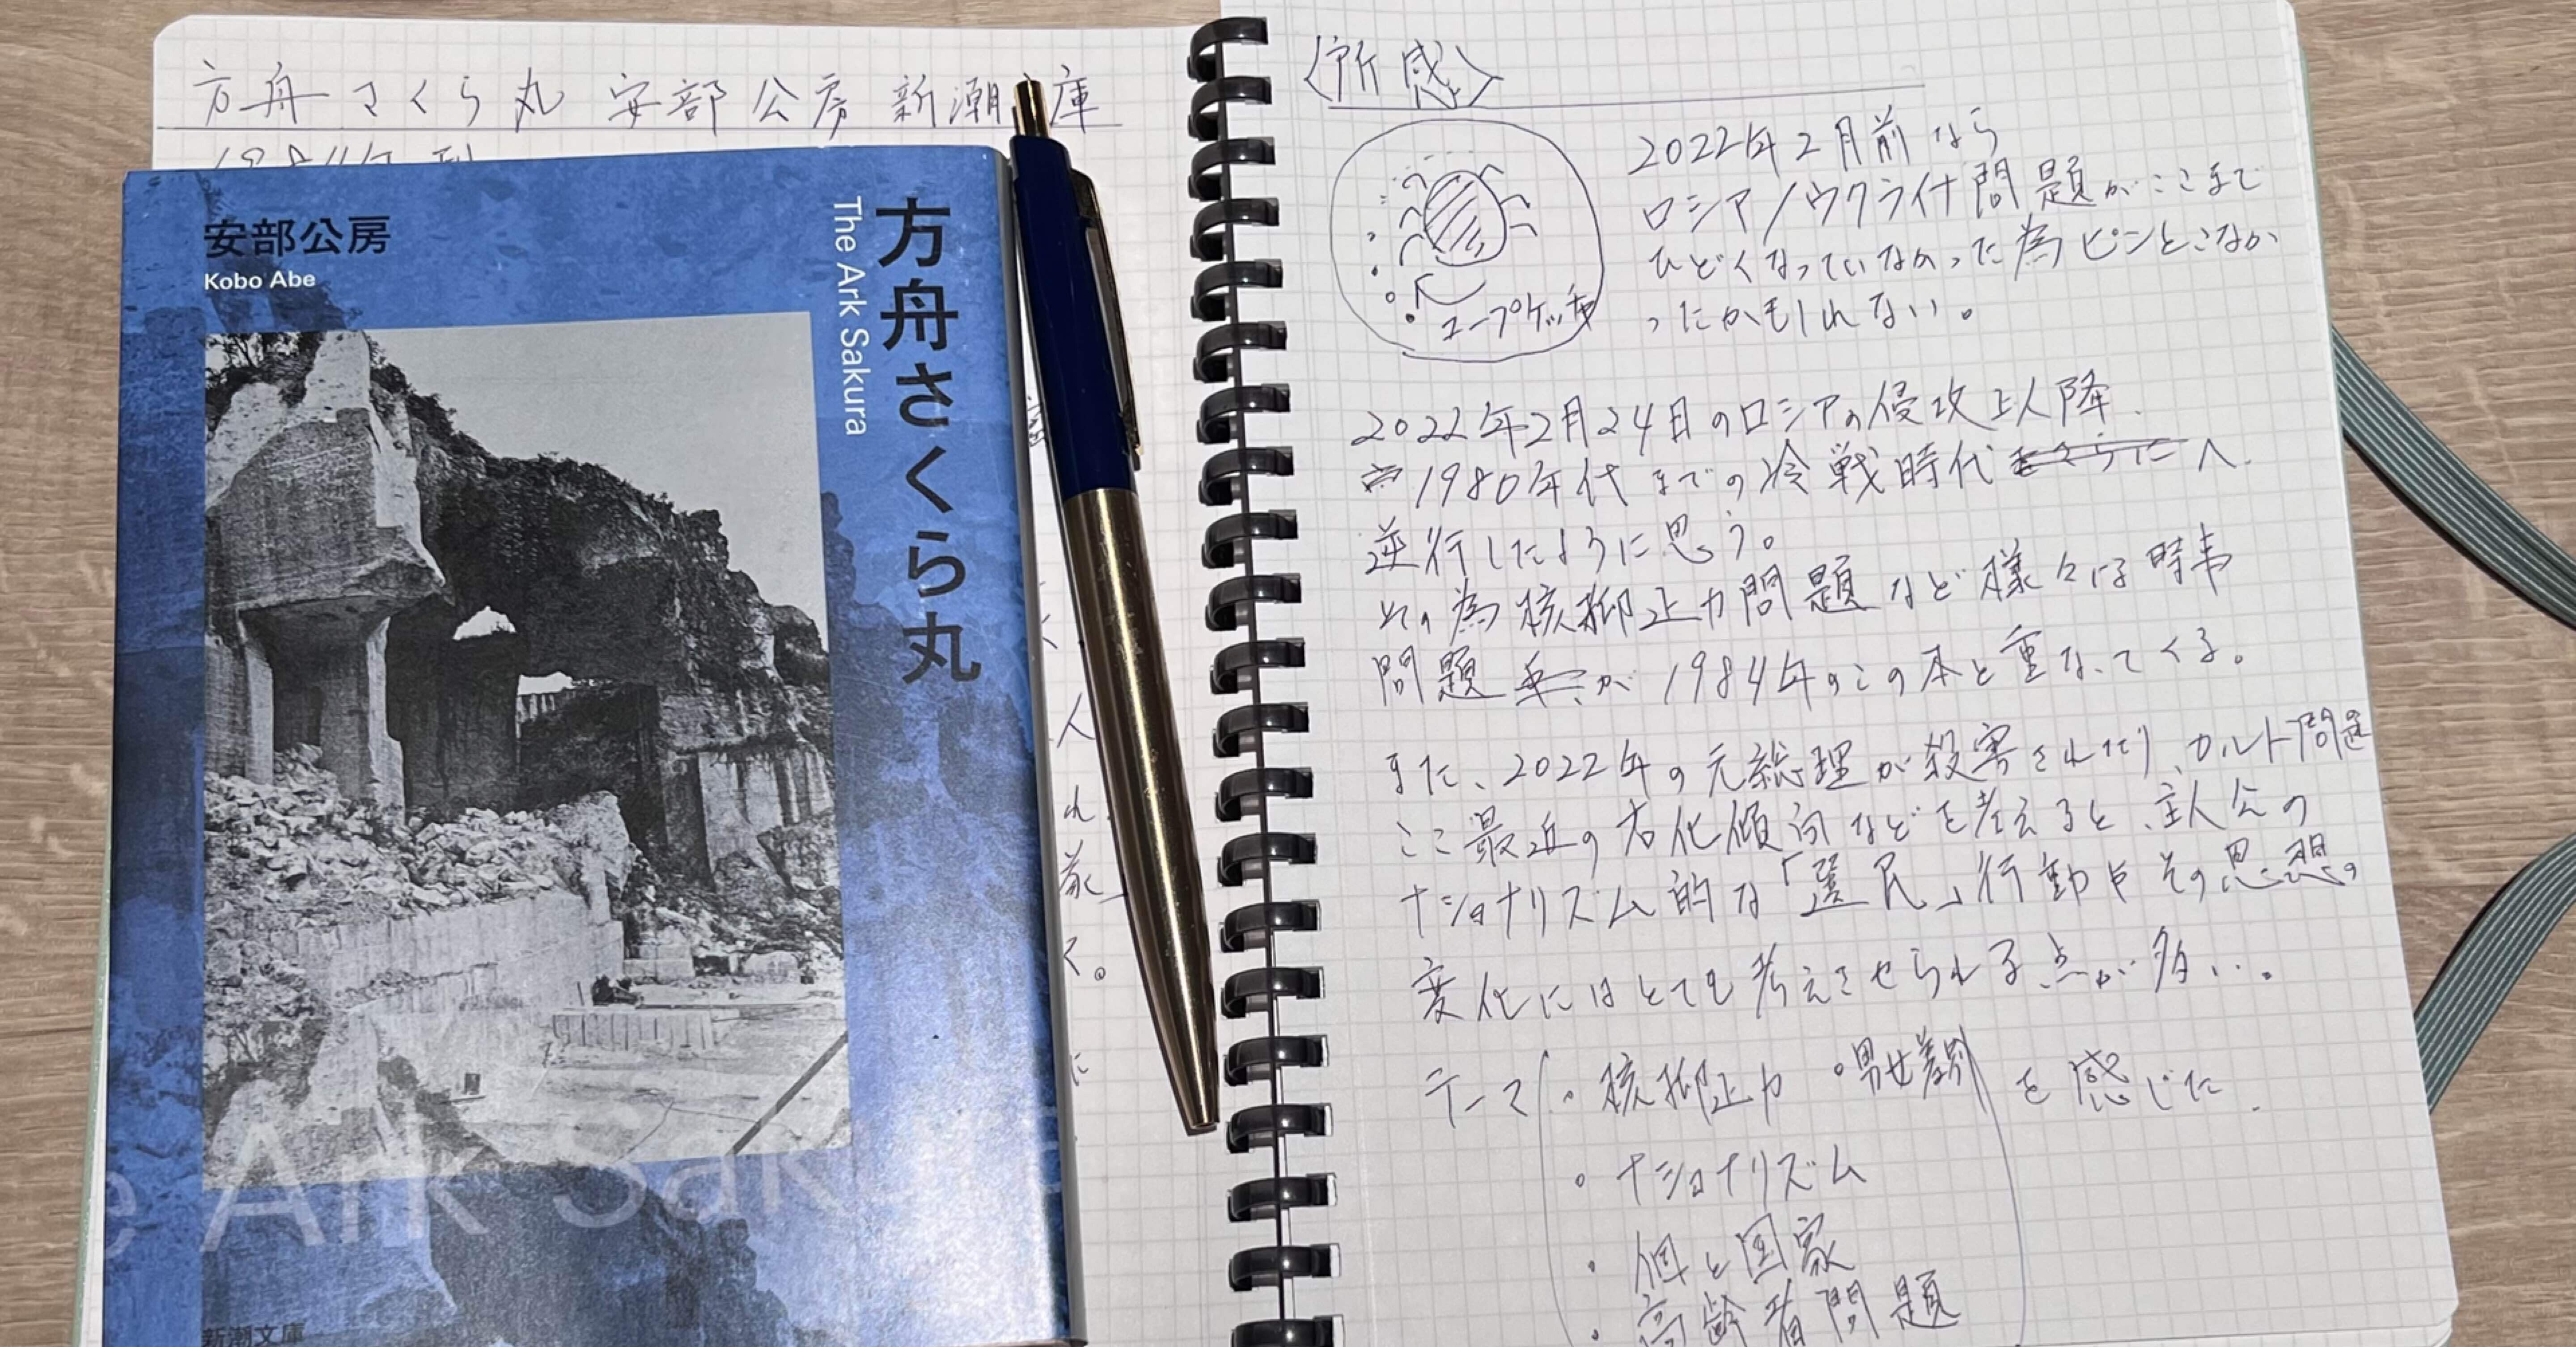 方舟さくら丸 安部公房 新潮 庫
安部公房
Kobo Abe
方舟さくら丸
The Ark Sakura
e Ark Sak
新潮文庫
人
れ
家
く。
に
〈所感〉
ユープケッチャ
2022年2月前なら
ロシア/ウクライナ問題がここまで
ひどくなっていなかった為ピンとこなか
ったかもしれない。
2022年2月24日のロシアの侵攻以降
1980年代までの冷戦時代へ
逆行したように思う。
その為核抑止力問題など様々な時事
問題が1984年のこの本と重なってくる。
また、2022年の元総理が殺害されたり、カルト問題
ここ最近の右化傾向などを考えると、主人公の
ナショナリズム的な「選民」行動やその思想の
変化にはとても考えさせられる点が多い…。
テーマ ・核抑止力 ・男女差別 を感じた.
・ナショナリズム
・個と国家
・高齢者問題